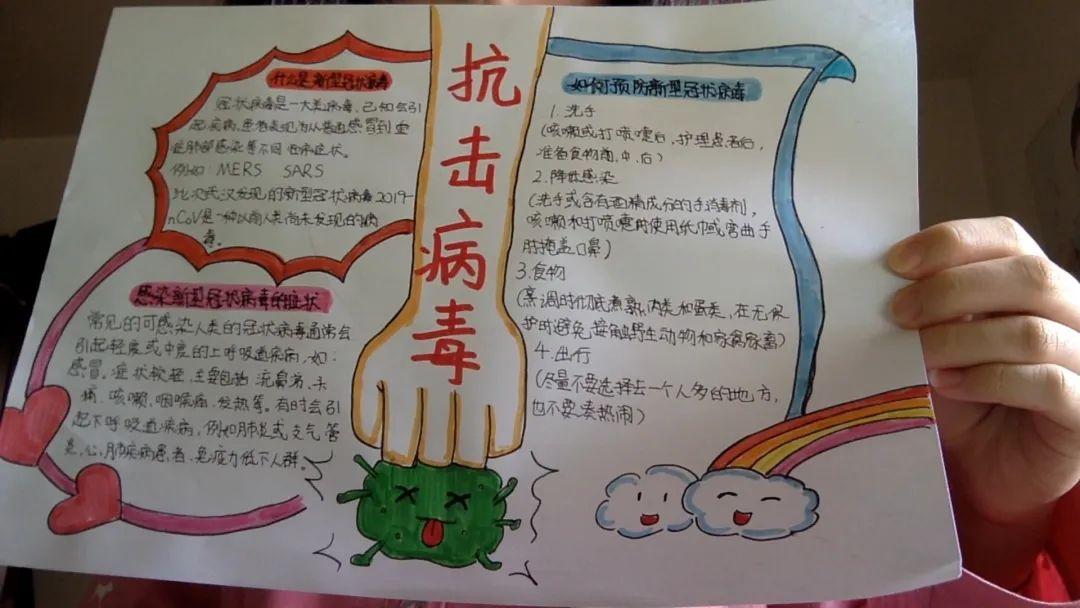 抗击病毒
什么是新型冠状病毒
冠状病毒是一大类病毒,已知会引
起疾病,患者表现为从普通感冒到血
症肺部感染等不同临床症状。
例如:MERS SARS
此次武汉发现的新型冠状病毒2019-
nCoV是一种以前人类尚未发现的病
毒。
感染新型冠状病毒的症状
常见的可感染人类的冠状病毒通常会
引起轻度或中度的上呼吸道疾病,如:
感冒。症状较轻,主要包括流鼻涕、头
痛、咳嗽、咽喉痛、发热等。有时会引
起下呼吸道疾病,例如肺炎或支气管
炎,心肺疾病患者、免疫力低下人群。
如何预防新型冠状病毒
1.洗手
(咳嗽或打喷嚏后,护理患者后,
准备食物前、中、后)
2.降低感染
(洗手或含有酒精成分的手消毒剂,
咳嗽和打喷嚏时使用纸巾或弯曲手
肘掩盖口鼻)
3.食物
(烹调时彻底煮熟肉类和蛋类,在无保
护时避免接触野生动物和家禽家畜)
4.出行
(尽量不要选择去一个人多的地方,
也不要凑热闹)